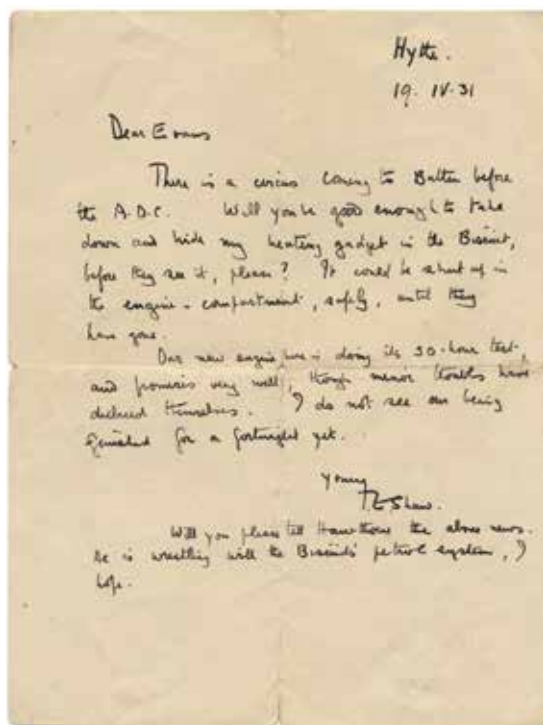 Hythe.
19. IV. 31
Dear Evans
There is a circus coming to Batten before
the A.D.C. Will you be good enough to take
down and hide my heating gadget in the Biscuit,
before they see it, please? It could be shut up in
the engine-compartment, safely, until they
have gone.
Our new engine here is doing its 50-hour test,
and promises very well, though minor troubles have
declared themselves. I do not see our being
finished for a fortnight yet.
Yours
T E Shaw.
Will you please tell Hawthorne the above news.
He is wrestling with the Biscuit's petrol system, I
hope.